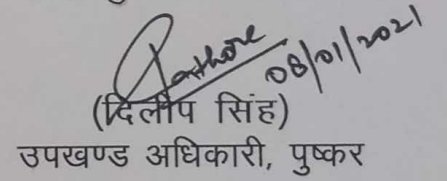 Rathore 08/01/2021
(दिलीप सिंह)
उपखण्ड अधिकारी, पुष्कर